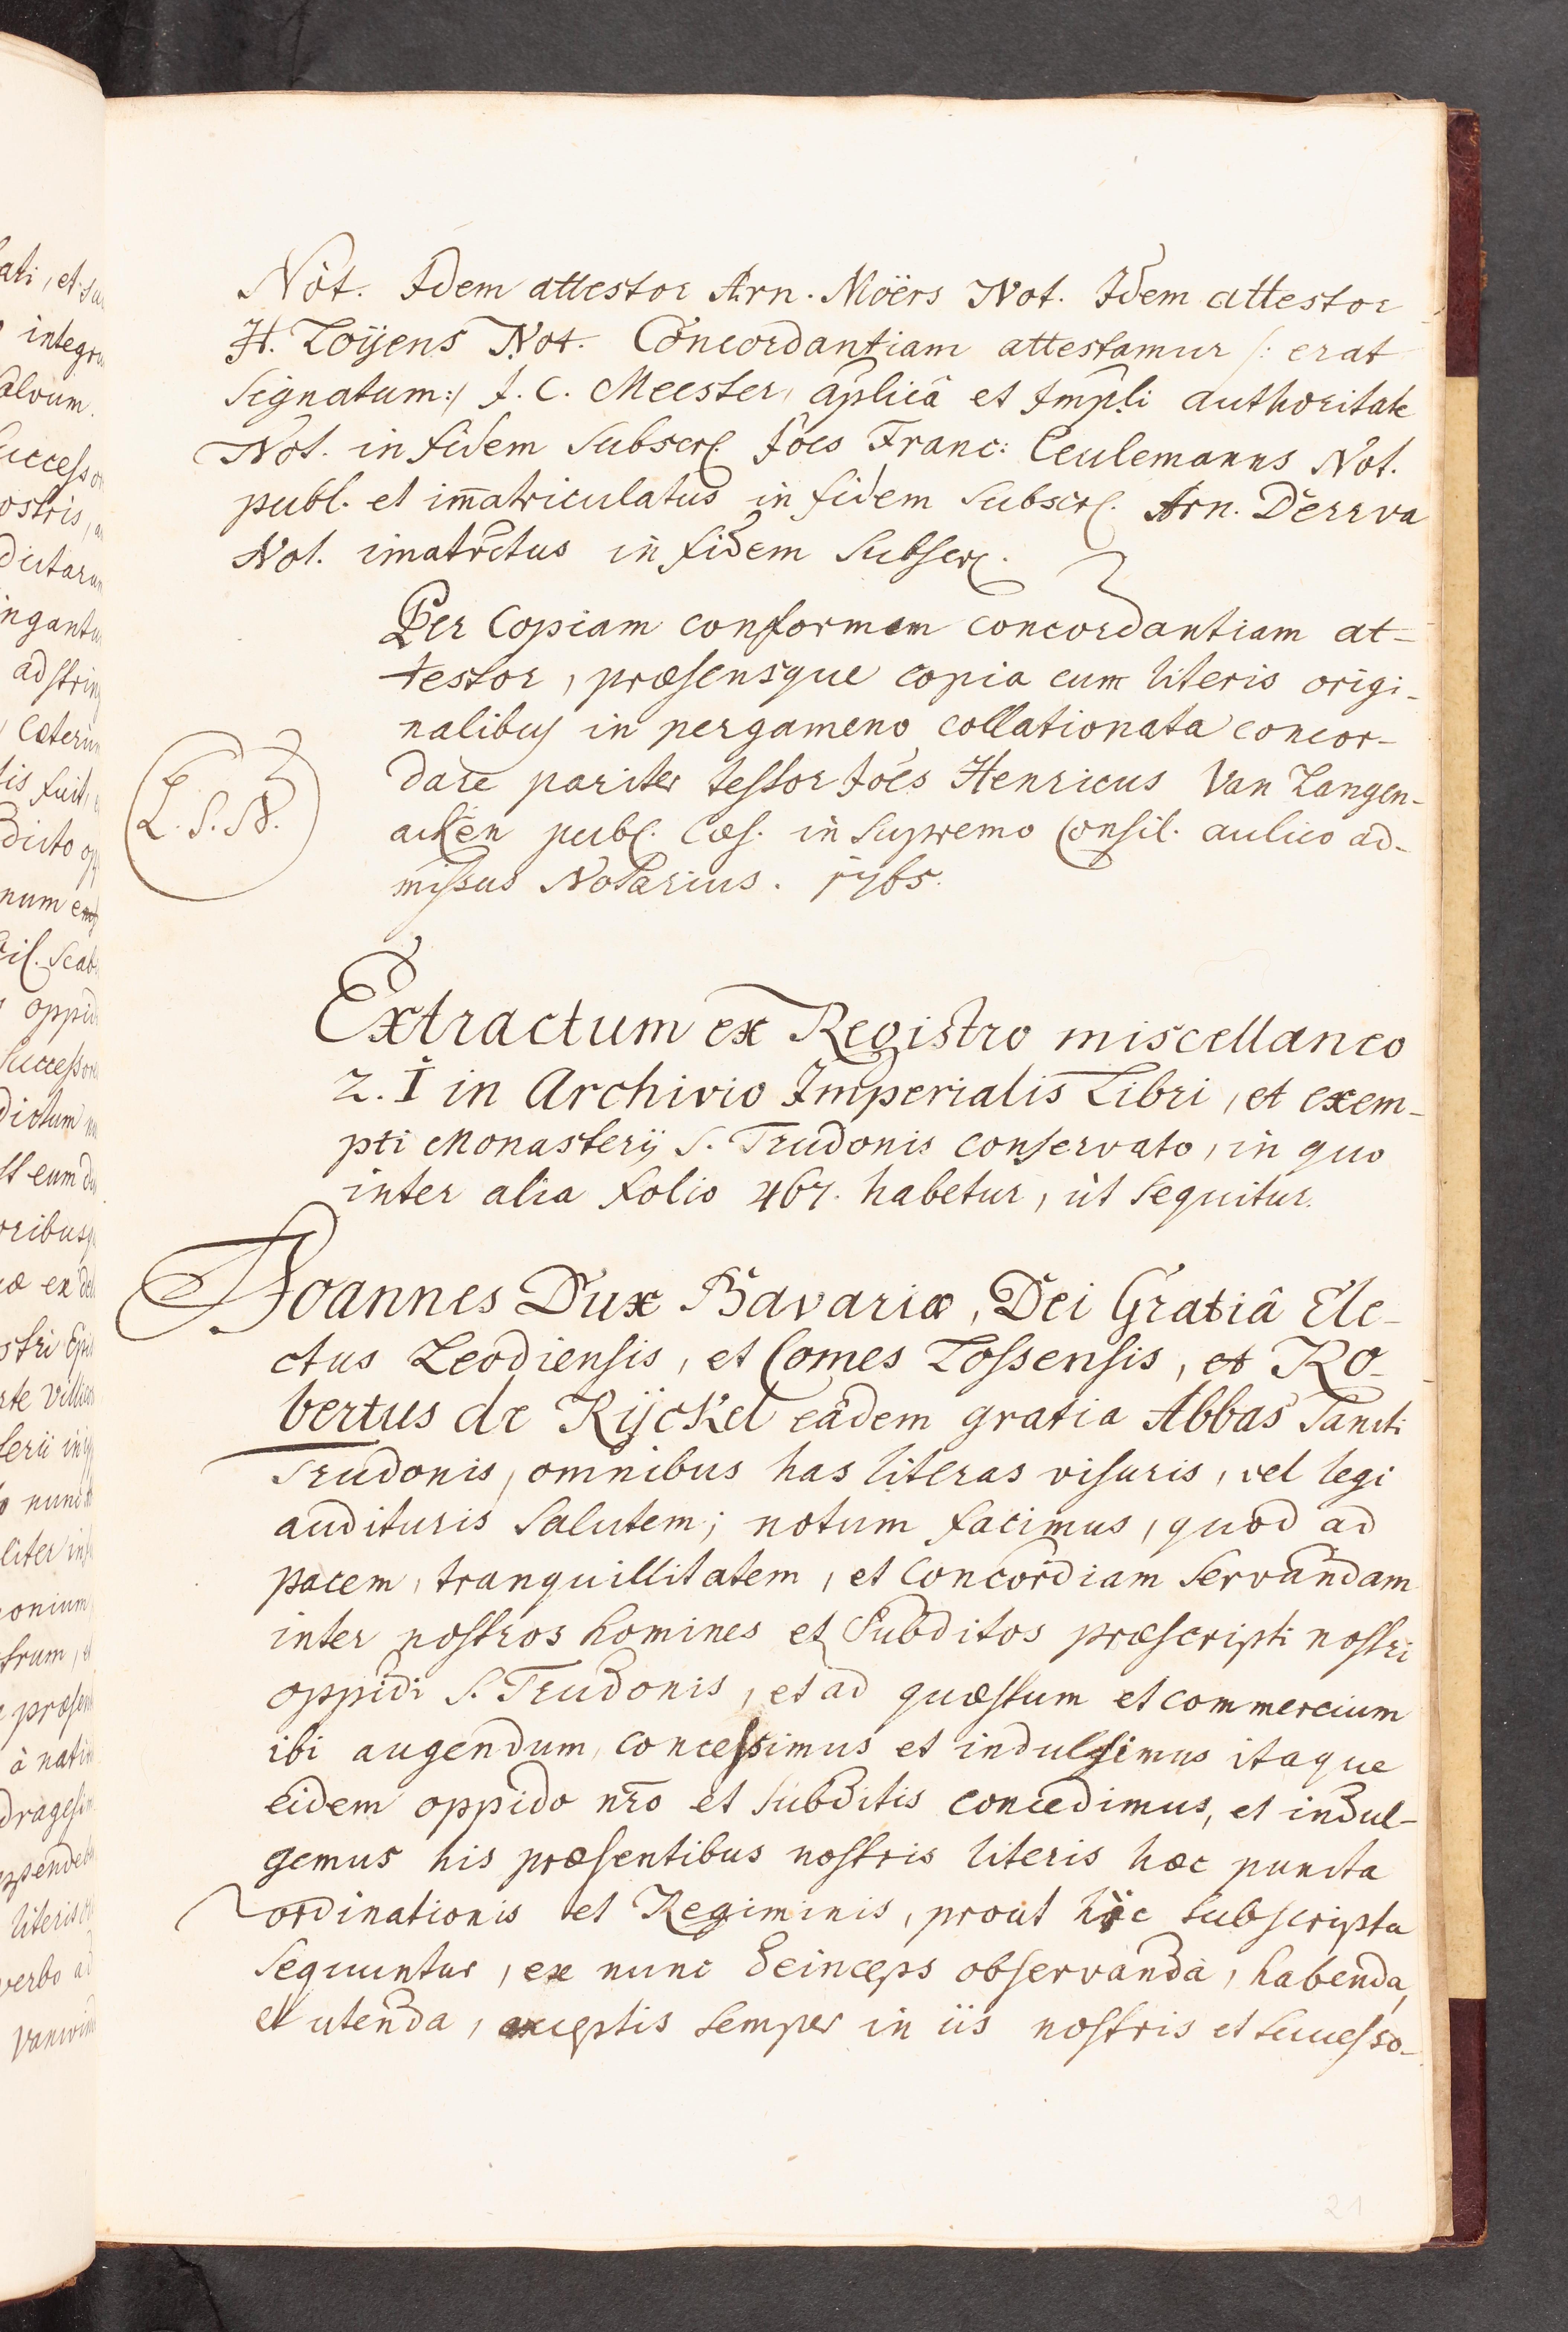 Not. Idem attestor Arn. Moërs Not. Idem attestor
H. Loÿens Not. Concordantiam attestamur /: erat
Signatum :/ J. C. Meester, aplicâ et Impli authoritate
Not. in fidem Subscr. Joes Franc: Ceulemanns Not.
publ. et im̄atriculatus in fidem Subscr. Arn. Derrva
Not. imatrctus in fidem Subscr.
Per Copiam conformem concordantiam at-
testor, præsensque copia cum literis origi-
nalibus in pergameno collationata concor-
dare pariter testor Joes Henricus Van Langen-
acken publ. Cæs. in Supremo Consil. aulico ad-
missus Notarius. 1765.
L. S. N.
Extractum ex Registro miscellaneo
2. I in Archivio Imperialis Libri, et exem-
pti Monasterij S. Trudonis conservato, in quo
inter alia folio 467. habetur, ut Sequitur.
Joannes Dux Bavariæ, Dei Gratiâ Ele-
ctus Leodiensis, et Comes Lossensis, et Ro-
bertus de Rijckel eâdem gratia Abbas Sancti
Trudonis, omnibus has literas visuris, vel legi
audituris Salutem; notum facimus, quod ad
pacem, tranquillitatem, et Concordiam Servandam
inter nostros homines et Subditos præscripti nostri
oppidi S. Trudonis, et ad quæstum et commercium
ibi augendum, concessimus et indulsimus itaque
eidem oppido nr̄o et Subditis concedimus, et indul-
gemus his præsentibus nostris literis hæc puncta
ordinationis et Regiminis, prout hic subscripta
Sequuntur, ex nunc deinceps observanda, habenda,
et utenda, exceptis Semper in iis nostris et Successo-
21